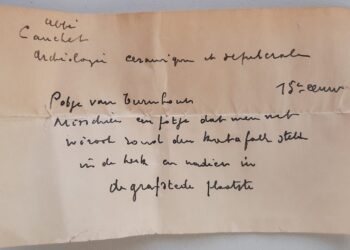 abbé
Cauchet
archéologie céramique et sépulcrale
15e eeuw
Potje van Turnhout
Misschien en potje dat men met
wierook rond den katafalk stelt
in de kerk en nadien in
de grafstede plaatste